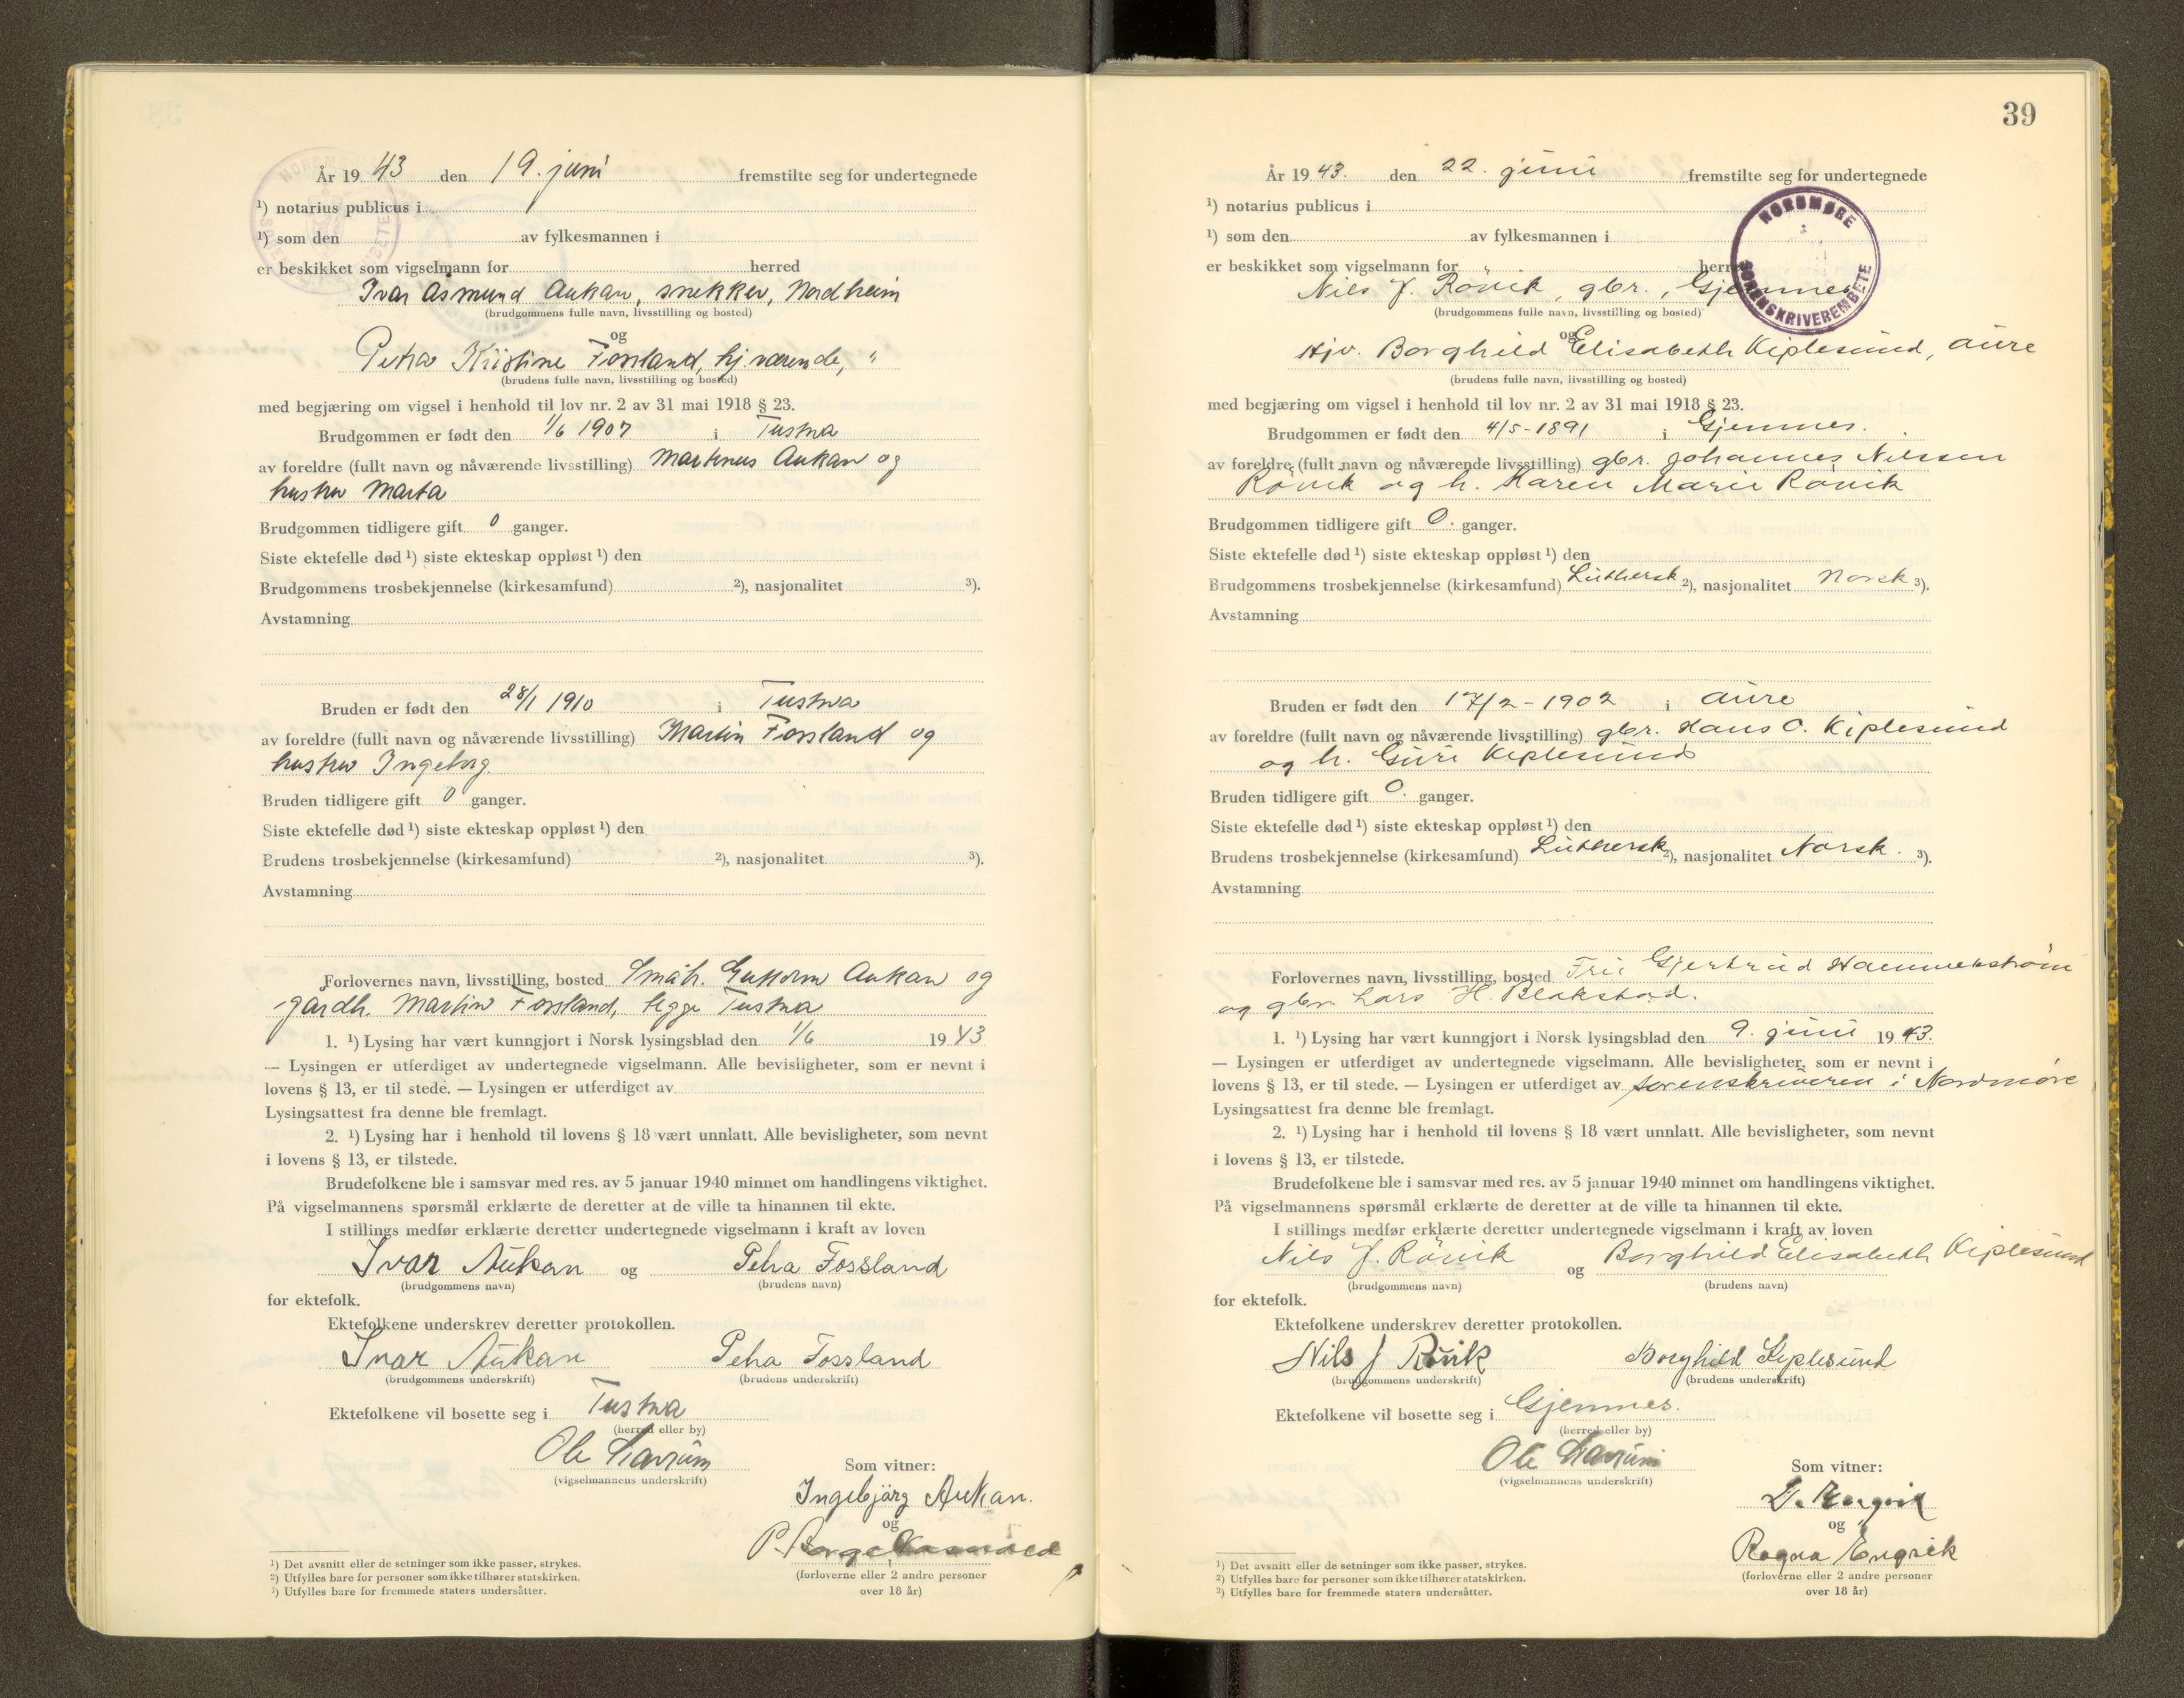 År 19 43 den 19. juni fremstilte seg for undertegnede
¹) notarius publicus i
¹) som den av fylkesmannen i
er beskikket som vigselmann for herred
Ivar Asmund Aukan, snekker, Nordheim
(brudgommens fulle navn, livsstilling og bosted)
og
Petra Kristine Fossland, hj.værende, "
(brudens fulle navn, livsstilling og bosted)
med begjæring om vigsel i henhold til lov nr. 2 av 31 mai 1918 § 23.
Brudgommen er født den 1/6 1907 i Tustna
av foreldre (fullt navn og nåværende livsstilling) Martinus Aukan og
hustru Marta
Brudgommen tidligere gift 0 ganger.
Siste ektefelle død ¹) siste ekteskap oppløst ¹) den
Brudgommens trosbekjennelse (kirkesamfund) ²), nasjonalitet ³).
Avstamning
Bruden er født den 28/1 1910 i Tustna
av foreldre (fullt navn og nåværende livsstilling) Martin Fossland og
hustru Ingeborg.
Bruden tidligere gift 0 ganger.
Siste ektefelle død ¹) siste ekteskap oppløst ¹) den
Brudens trosbekjennelse (kirkesamfund) ²), nasjonalitet ³).
Avstamning
Forlovernes navn, livsstilling, bosted Småbr. Guttorm Aukan og
gårdbr. Martin Fossland, begge Tustna
1. ¹) Lysing har vært kunngjort i Norsk lysingsblad den 1/6 19 43
— Lysingen er utferdiget av undertegnede vigselmann. Alle bevisligheter, som er nevnt i
lovens § 13, er til stede. — Lysingen er utferdiget av
Lysingsattest fra denne ble fremlagt.
2. ¹) Lysing har i henhold til lovens § 18 vært unnlatt. Alle bevisligheter, som nevnt
i lovens § 13, er tilstede.
Brudefolkene ble i samsvar med res. av 5 januar 1940 minnet om handlingens viktighet.
På vigselmannens spørsmål erklærte de deretter at de ville ta hinannen til ekte.
I stillings medfør erklærte deretter undertegnede vigselmann i kraft av loven
Ivar Aukan og Petra Fossland
(brudgommens navn) (brudens navn)
for ektefolk.
Ektefolkene underskrev deretter protokollen.
Ivar Aukan Petra Fossland
(brudgommens underskrift) (brudens underskrift)
Ektefolkene vil bosette seg i Tustna
(herred eller by)
Ole
(vigselmannens underskrift)
Som vitner:
Ingebjørg Aukan.
og
P.
(forloverne eller 2 andre personer
over 18 år)
¹) Det avsnitt eller de setninger som ikke passer, strykes.
²) Utfylles bare for personer som ikke tilhører statskirken.
³) Utfylles bare for fremmede staters undersåtter.
39
År 19 43. den 22. juni fremstilte seg for undertegnede
¹) notarius publicus i
¹) som den av fylkesmannen i
er beskikket som vigselmann for herred
NORDMØRE
SORENSKRIVEREMBETE
Nils J. Rövik, gbr., Gjemnes
(brudgommens fulle navn, livsstilling og bosted)
og
Hjv. Borghild Elisabeth Kiplesund, Aure
(brudens fulle navn, livsstilling og bosted)
med begjæring om vigsel i henhold til lov nr. 2 av 31 mai 1918 § 23.
Brudgommen er født den 4/5-1891 i Gjemnes.
av foreldre (fullt navn og nåværende livsstilling) gbr. Johannes Nilssen
Rövik og h. Karen Marie Rövik
Brudgommen tidligere gift 0. ganger.
Siste ektefelle død ¹) siste ekteskap oppløst ¹) den
Brudgommens trosbekjennelse (kirkesamfund) Luthersk ²), nasjonalitet Norsk ³).
Avstamning
Bruden er født den 17/2-1902 i Aure
av foreldre (fullt navn og nåværende livsstilling) gbr. Hans O. Kiplesund
og h. Guri Kiplesund
Bruden tidligere gift 0. ganger.
Siste ektefelle død ¹) siste ekteskap oppløst ¹) den
Brudens trosbekjennelse (kirkesamfund) Luthersk ²), nasjonalitet Norsk. ³).
Avstamning
Forlovernes navn, livsstilling, bosted Fru Gjertrud
og gbr. Lars H. Blakstad.
1. ¹) Lysing har vært kunngjort i Norsk lysingsblad den 9. juni 19 43.
— Lysingen er utferdiget av undertegnede vigselmann. Alle bevisligheter, som er nevnt i
lovens § 13, er til stede. — Lysingen er utferdiget av sorenskriveren i Nordmøre
Lysingsattest fra denne ble fremlagt.
2. ¹) Lysing har i henhold til lovens § 18 vært unnlatt. Alle bevisligheter, som nevnt
i lovens § 13, er tilstede.
Brudefolkene ble i samsvar med res. av 5 januar 1940 minnet om handlingens viktighet.
På vigselmannens spørsmål erklærte de deretter at de ville ta hinannen til ekte.
I stillings medfør erklærte deretter undertegnede vigselmann i kraft av loven
Nils J. Rövik og Borghild Elisabeth Kiplesund
(brudgommens navn) (brudens navn)
for ektefolk.
Ektefolkene underskrev deretter protokollen.
Nils J Rövik Borghild Kiplesund
(brudgommens underskrift) (brudens underskrift)
Ektefolkene vil bosette seg i Gjemnes.
(herred eller by)
Ole
(vigselmannens underskrift)
Som vitner:
og
Ragna Engvik
(forloverne eller 2 andre personer
over 18 år)
¹) Det avsnitt eller de setninger som ikke passer, strykes.
²) Utfylles bare for personer som ikke tilhører statskirken.
³) Utfylles bare for fremmede staters undersåtter.